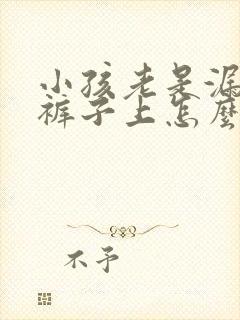 小孩老是漏
裤子上怎麼
不予